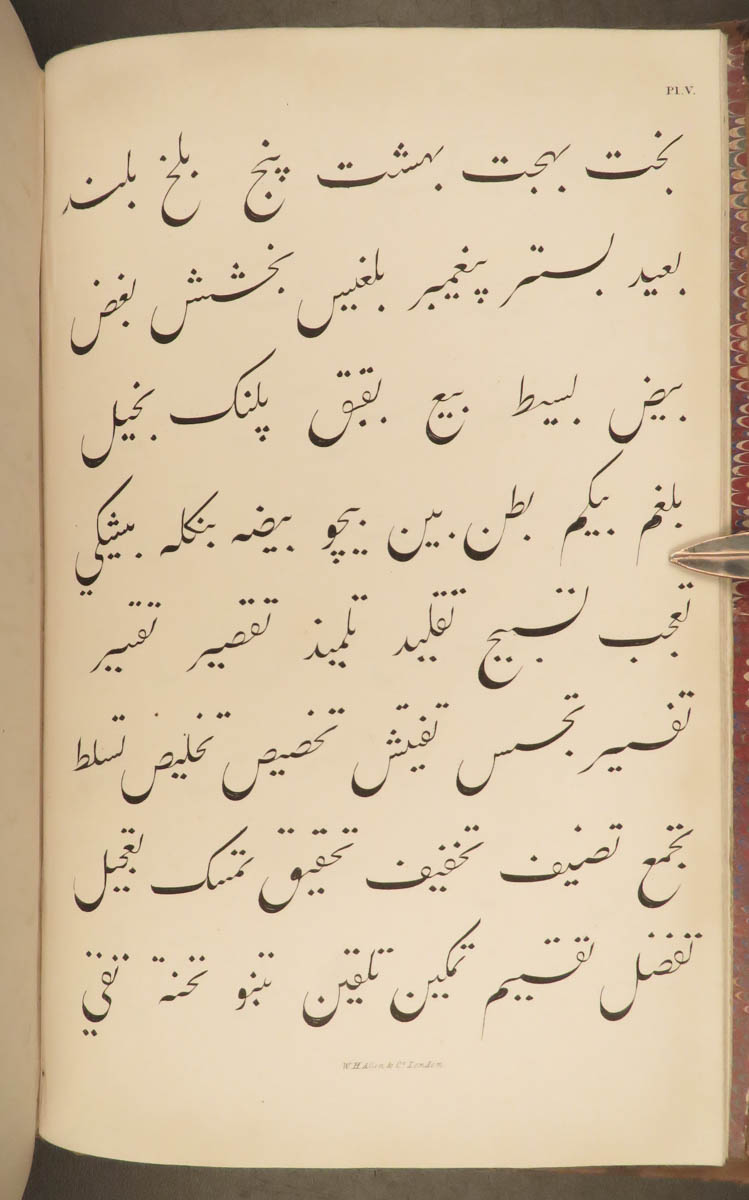 Pl.V.
بخت بهجت بهشت پنج بلخ بلند
بعید بستر پیغمبر بلغیس بخشش بغض
بیض بسیط بیع بقبق پلنک بخیل
بلغم بیکم بطن بین بیضه بنکله بیشکي
تعجب تسبیح تقلید تلمیذ تقصیر
تفسیر تجسس تفتیش تخصیص تخلیص تسلط
تجمع تصنیف تخفیف تحقیق تمسک تعجیل
تفضل تقسیم تمکین تلقین تقي
W.H.Allen & Co. London